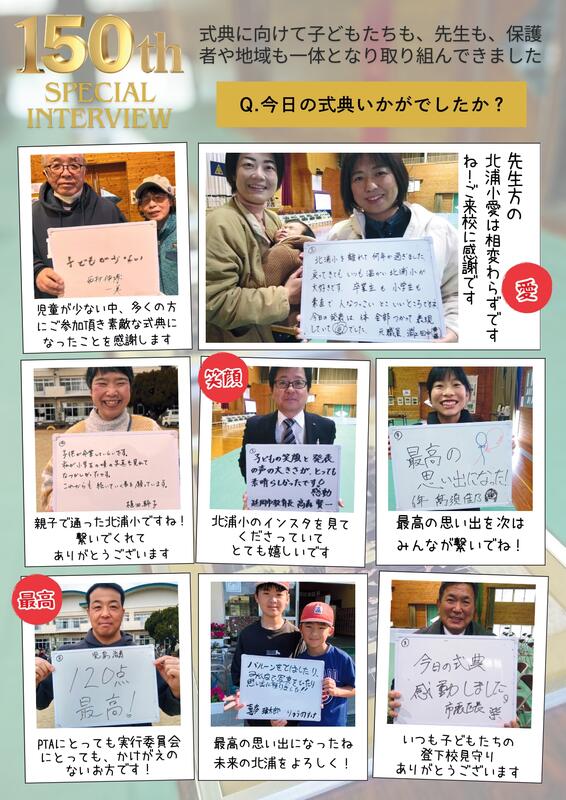 150th
SPECIAL
INTERVIEW
式典に向けて子どもたちも、先生も、保護
者や地域も一体となり取り組んできました
Q.今日の式典いかがでしたか？
子どもが少ない
児童が少ない中、多くの方
にご参加頂き素敵な式典に
なったことを感謝します
北浦小を離れて何年か過ぎました
戻ってきてもいつも温かい北浦小が
大好きです。卒業生も小学生も
素直で人なつっこいところがいいところです
今日の発表は体全部つかって表現
していて
でした。
先生方の
北浦小愛は相変わらずです
ね！ご来校に感謝です
愛
子供が卒業していらいです。
なつかしかったです。
親子で通った北浦小ですね！
繋いでくれて
ありがとうございます
笑顔
子どもの笑顔と発表
の声の大きさが、とっても
素晴らしかったです。
感動
延岡市教育長 高森 賢一
北浦小のインスタを見て
くださっていて
とても嬉しいです
最高の
思い出になった！
6年
最高の思い出を次は
みんなが繋いでね！
最高
120点
最高！
PTAにとっても実行委員会
にとっても、かけがえの
ないお方です！
バルーンをとばしたり、
みんなで写真をとったり
思い出に残りました!!
最高の思い出になったね
未来の北浦をよろしく！
今日の式典
感動しました。
いつも子どもたちの
登下校見守り
ありがとうございます